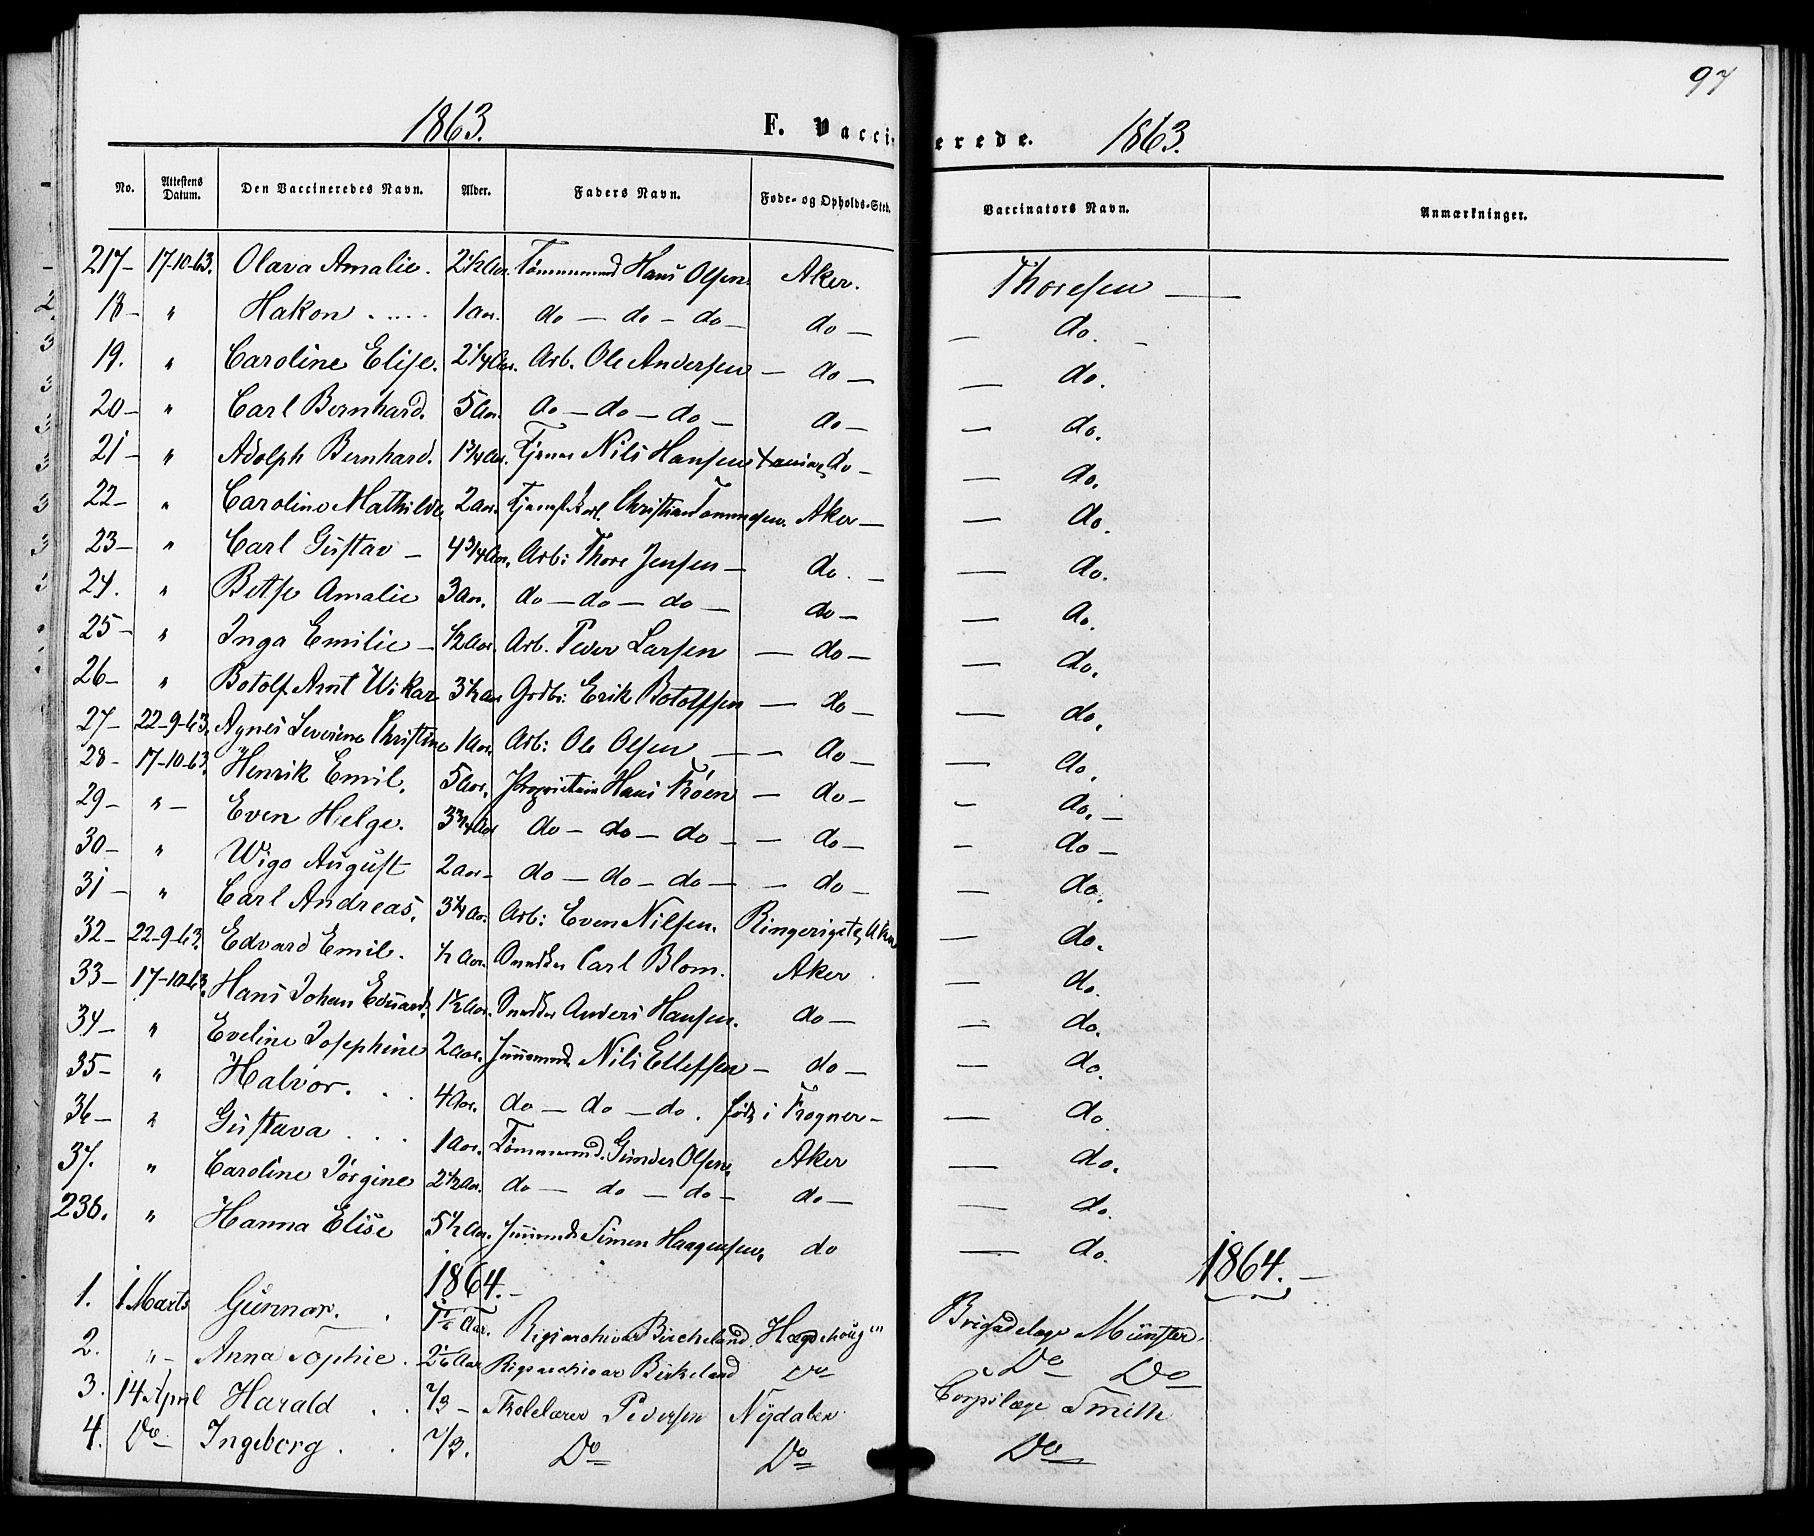 97
1863. F. Vaccinerede. 1863.
No. Attestens Datum. Den Vaccineredes Navn. Alder. Faders Navn. Føde- og Opholds-Sted. Vaccinators Navn. Anmærkninger.
217- 17-10-63. Olava Amalie. 2½ Aar. Tømmermd Hans Olsen. Aker. Thoresen —
18- " Hakon .... 1 Aar. do — do — do — do — — do. -
19. " Caroline Elise. 2¼ Aar. Arb. Ole Andersen — do — — do.
20- " Carl Bernhard. 5 Aar. do — do — do — do — — do.
21- " Adolph Bernhard. 1¾ Aar. Tjener Nils Hansen do — — do.
22- " Caroline Mathilde 2 Aar. Christian Tommesen. Aker — — do.
23- " Carl Gustav — 4¾ Aar. Arb: Thore Jensen — do. — — do.
24. " Betsy Amalie 3 Aar. do — do — do — do — — do.
25- " Inga Emilie — ½ Aar. Arb. Peder Larsen — do — — do.
26- " Botolf Arnt Wikar 3½ Aar Grdbr: Erik Botolfsen — do — — do.
27- 22-9-63. Agnes Severine Christine 1 Aar. Arb: Ole Olsen — — do — — do.
28- 17-10-63. Henrik Emil. 5 Aar. Proprietair Hans Frøen — do — — do.
29- "- Even Helge. 3¾ Aar do — do — do — — do — - do. —
30- " Wigo August 2 Aar- do — do — do — — do — - do —
31- " Carl Andreas. 3¼ Aar. Arb: Even Nilsen. Ringerige — do.
32- 22-9-63. Edvard Emil. ½ Aar. Snedker Carl Blom. Aker. — do.
33- 17-10-63. Hans Johan Edvard. 1½ Aar. Snedker Anders Hansen. do — — do.
34- " Eveline Josephine 2 Aar. Nils Ellefsen — do — — do.
35- " Halvor. . . 4 Aar. do — do — do. født i Frogner — — do.
36- " Gustava . . . 1 Aar. Tømmermd. Gunder Olsen. Aker — do.
37. " Caroline Jørgine 2½ Aar. do — do — do — do — — do.
238. " Hanna Elise 5½ Aar. Simen Haagensen. do — do.
1864. — 1864. —
1. 1 Marts Gunnar. . Aar. Rigsarchivar Birkeland. Hægdehougn Brigadelæge Münster.
2. "- Anna Sophie. 2 Aar Rigsarchivar Birkeland Do Do Do
3. 14 April Harald . . 2/3 — Skolelærer Pedersen Nydalen. Corpslæge Smith
4. Do — Ingeborg . . 2/3. Do Do Do